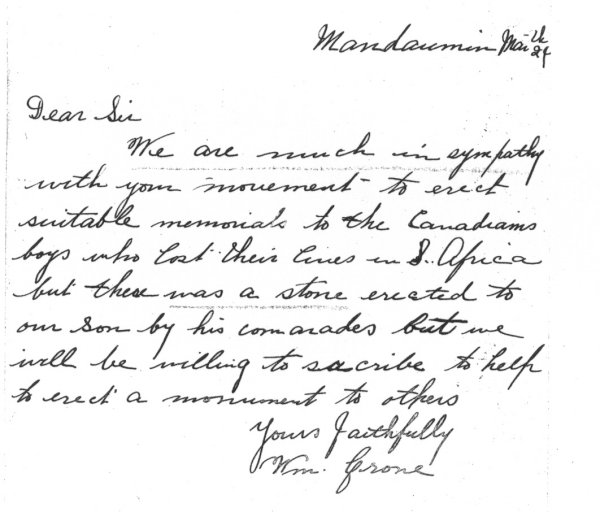 Mandaumin Mar 24
Dear Sir
We are much in sympathy
with your movement to erect
suitable memorials to the Canadians
boys who lost their lives in S. Africa
but there was a stone erected to
our son by his comarades but we
will be willing to sacribe to help
to erect a monument to others
Yours Faithfully
Wm. Crone